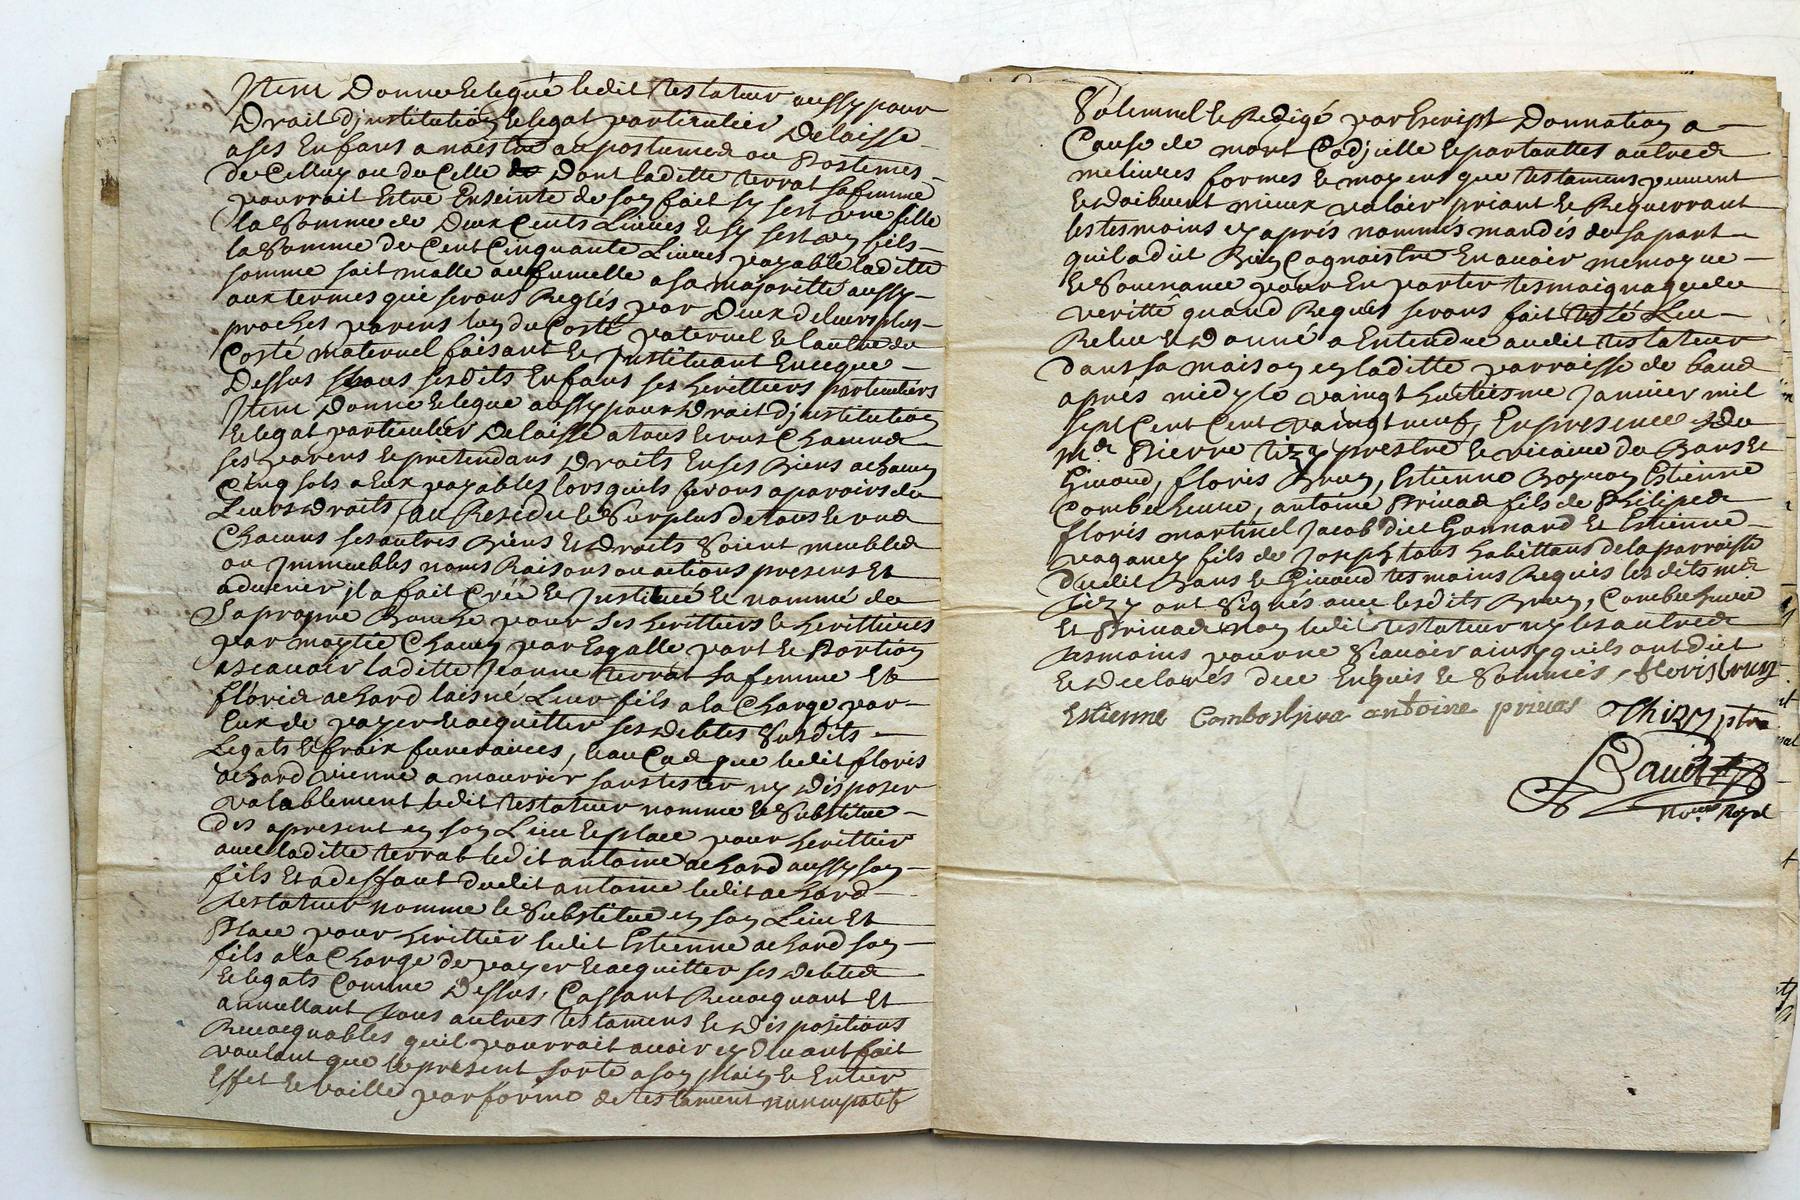 Item Donne & legue ledit testateur aussy pour
Droit d'institution & legat particulier Delaisse
a ses Enfans a naistre au postumes ou Postumes
de Celluy ou de Celle Dont laditte terrat sa femme
pourroit Estre Enseinte de son fait sy sest une fille
la Somme de Deux Cents Livres & sy sest un fils
la Somme de Cent Cinquante Livres payable laditte
somme soit malle ou fumelle a sa majoritté aussy
aux termes qui seront Reglés par Deux de leurs plus
proches parens lun du Costé paternel & lautre du
Costé maternel faisant & Instituant En ce que
Dessus tous sesdits Enfans ses heritiers particuliers
Item Donne & legue aussy pour Droit d'institution
& legat particulier Delaisse a tous & uns Chacuns
ses parens & pretendans Droits En ses Biens a Chacun
Cinq sols a Eux payables lors quils feront aparoir de
Leurs Droits, au Residu & Surplus de tous & uns
Chacuns ses autres Biens & Droits Soient meubles
ou Immeubles noms Raisons ou actions presens Et
advenir il a fait Créé & Institué & nommé de
Sa propre Bouche pour ses herittiers & herittieres
par moytié Chacun par Esgalle part & Portion
ascavoir laditte Jeanne terrat sa femme Et
floris achard laisné Leur fils a la Charge par
Eux de payer & acquitter ses debtes Susdits
Legats & fraix funeraires, & au Cas que ledit floris
achard vienne a mourir sans tester ny Disposer
valablement ledit testateur nomme & Substitue
des apresent en son Lieu & place pour herittier
avec laditte terrat ledit antoine achard aussy son
fils Et a deffaut dudit antoine ledit achard
testateur nomme & Substitue en son Lieu Et
Place pour herittier ledit Estienne achard son
fils a la Charge de payer & acquitter ses debtes
& legats Comme Dessus, Cassant Revocquant Et
annullant tous autres testamens & Dispositions
Revocquables quil pourroit avoir cy Devant fait
voulant que le present sorte a son plain & Entier
Effet & vaille par forme de testament nuncupatif
Solemnel & Redigé par Escript Donnation a
Cause de mort Codicille & par touttes autres
melieures formes & moyens que testamens peuvent
& doibvent mieux valoir priant & Requerrant
les tesmoins cy aprés nommés mandés de sa part
quil a dit Bien Cognoistre En avoir memoyre
& Souvenance pour En porter tesmoignage de
veritté quand Requis seront fait testé Leu
Releu & Donné a Entendre audit testateur
dans sa maison en laditte parroisse de
aprés midy le vaingt huitiesme Janvier mil
sept Cent Cent vaingt neuf, En presence de
mre Pierre tizy prestre & vicaire du Bans &
Givord, floris Brun, Estienne Estienne
antoine Privas fils de Philipes
floris martinel Jacob dit Gonnard & Estienne
fils de Joseph tous habittans de la parroisse
dudit Bans & Givord tesmoins Requis lesdits mre
tizy ont Signés avec lesdits Brun,
Et Privas non ledit testateur ny les autres
tesmoins pour ne Scavoir ainsy quils ont dit
& declarés de ce Enquis & Sommés, floris brun
Estienne antoine privas Thizy ptre
Royal